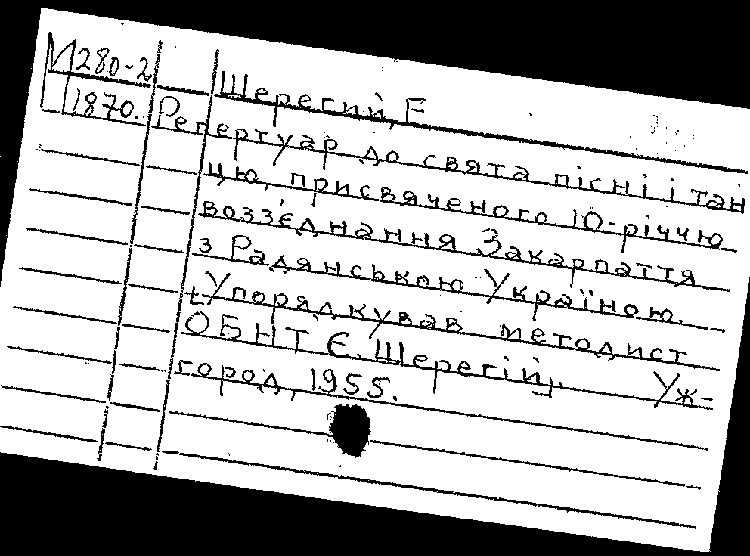 И280-2 Шерегий, Е
1870. Репертуар до свята пісні і тан
цю, присвяченого 10-річчю
возз'єднання Закарпаття
з Радянською Україною.
[Упорядкував методист
ОБНТ Є. Шерегій]. Уж-
город, 1955.